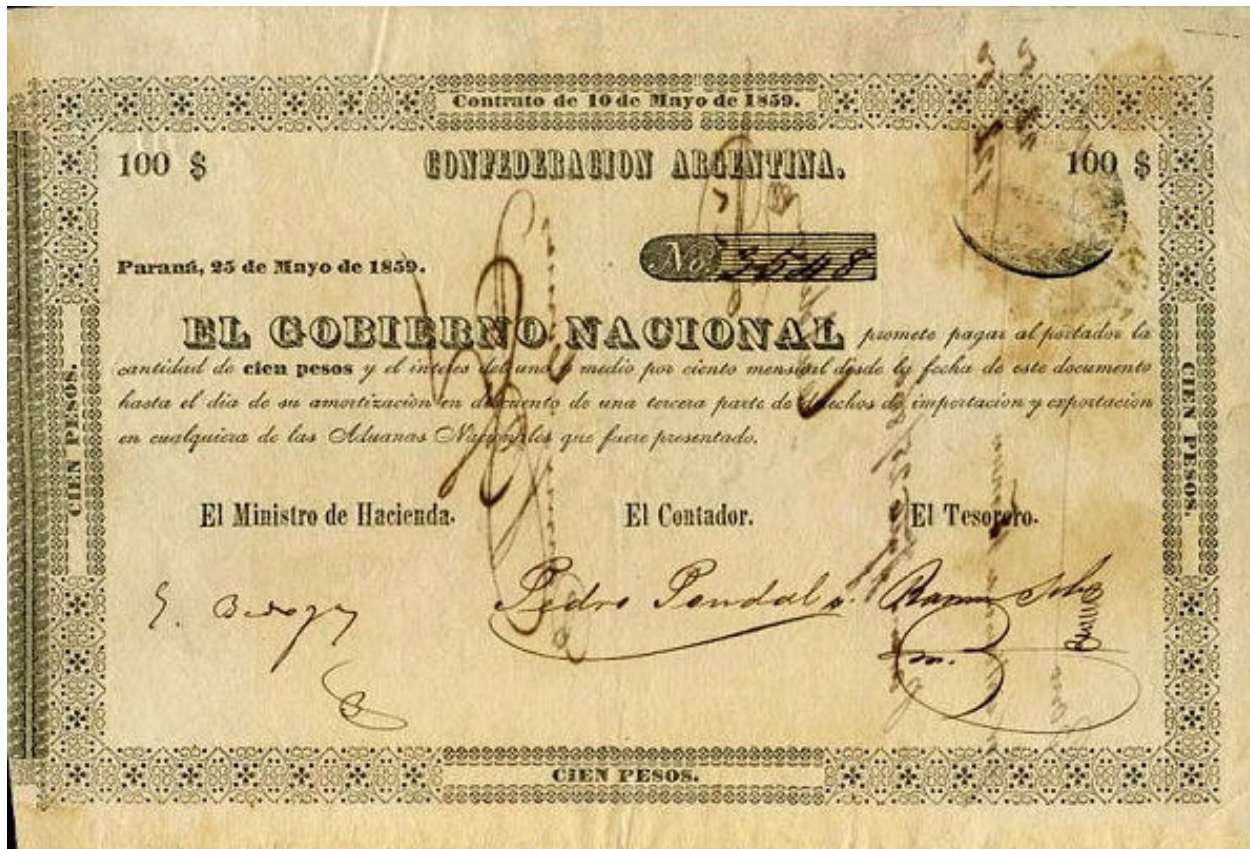 Contrato de 10 de Mayo de 1859.
100 $ CONFEDERACION ARGENTINA. 100 $
Paraná, 25 de Mayo de 1859. No. 3548
EL GOBIERNO NACIONAL promete pagar al portador la
cantidad de cien pesos y el interes del uno y medio por ciento mensual desde la fecha de este documento
hasta el dia de su amortizacion en descuento de una tercera parte de derechos de importacion y esportacion
en cualquiera de las Aduanas Nacionales que fuere presentado.
CIEN PESOS.
CIEN PESOS.
El Ministro de Hacienda. El Contador. El Tesorero.
Pedro Pondal Ramon
CIEN PESOS.